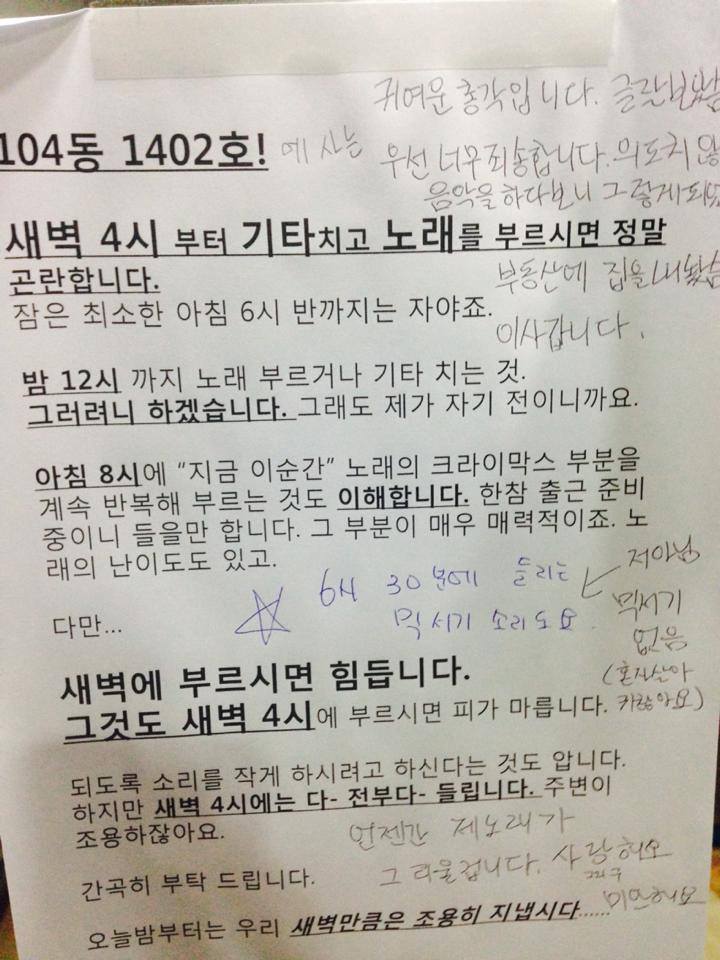 귀여운 총각입니다. 글 잘 보았
104동 1402호! 에 사는 우선 너무 죄송합니다. 의도치 않
음악을 하다보니 그렇게 되었
새벽 4시 부터 기타치고 노래를 부르시면 정말
곤란합니다.
부동산에 집을 내놨습
잠은 최소한 아침 6시 반까지는 자야죠.
이사갑니다.
밤 12시 까지 노래 부르거나 기타 치는 것.
그러려니 하겠습니다. 그래도 제가 자기 전이니까요.
아침 8시에 "지금 이순간" 노래의 크라이막스 부분을
계속 반복해 부르는 것도 이해합니다. 한참 출근 준비
중이니 들을만 합니다. 그 부분이 매우 매력적이죠. 노
래의 난이도도 있고.
6시 30분에 들리는
믹서기 소리도요.
저아님
믹서기
없음
(혼자살아
귀찮아요)
다만...
새벽에 부르시면 힘듭니다.
그것도 새벽 4시에 부르시면 피가 마릅니다.
되도록 소리를 작게 하시려고 하신다는 것도 압니다.
하지만 새벽 4시에는 다- 전부다- 들립니다. 주변이
조용하잖아요.
언젠간 제노래가
그리울겁니다. 사랑해요
간곡히 부탁 드립니다.
미안해요
오늘밤부터는 우리 새벽만큼은 조용히 지냅시다......